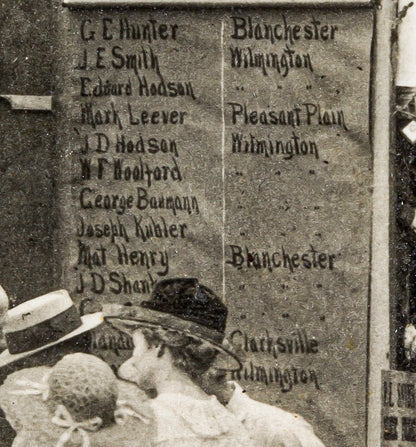 G E Hunter Blanchester
J. E Smith Wilmington
Edward Hodson " "
Mark Leever Pleasant Plain
J D Hodson Wilmington
W F Woolford " "
George Baumann " "
Joseph Kubler " "
Mat Henry Blanchester
J D Shank " "
" "
Clarksville
Wilmington